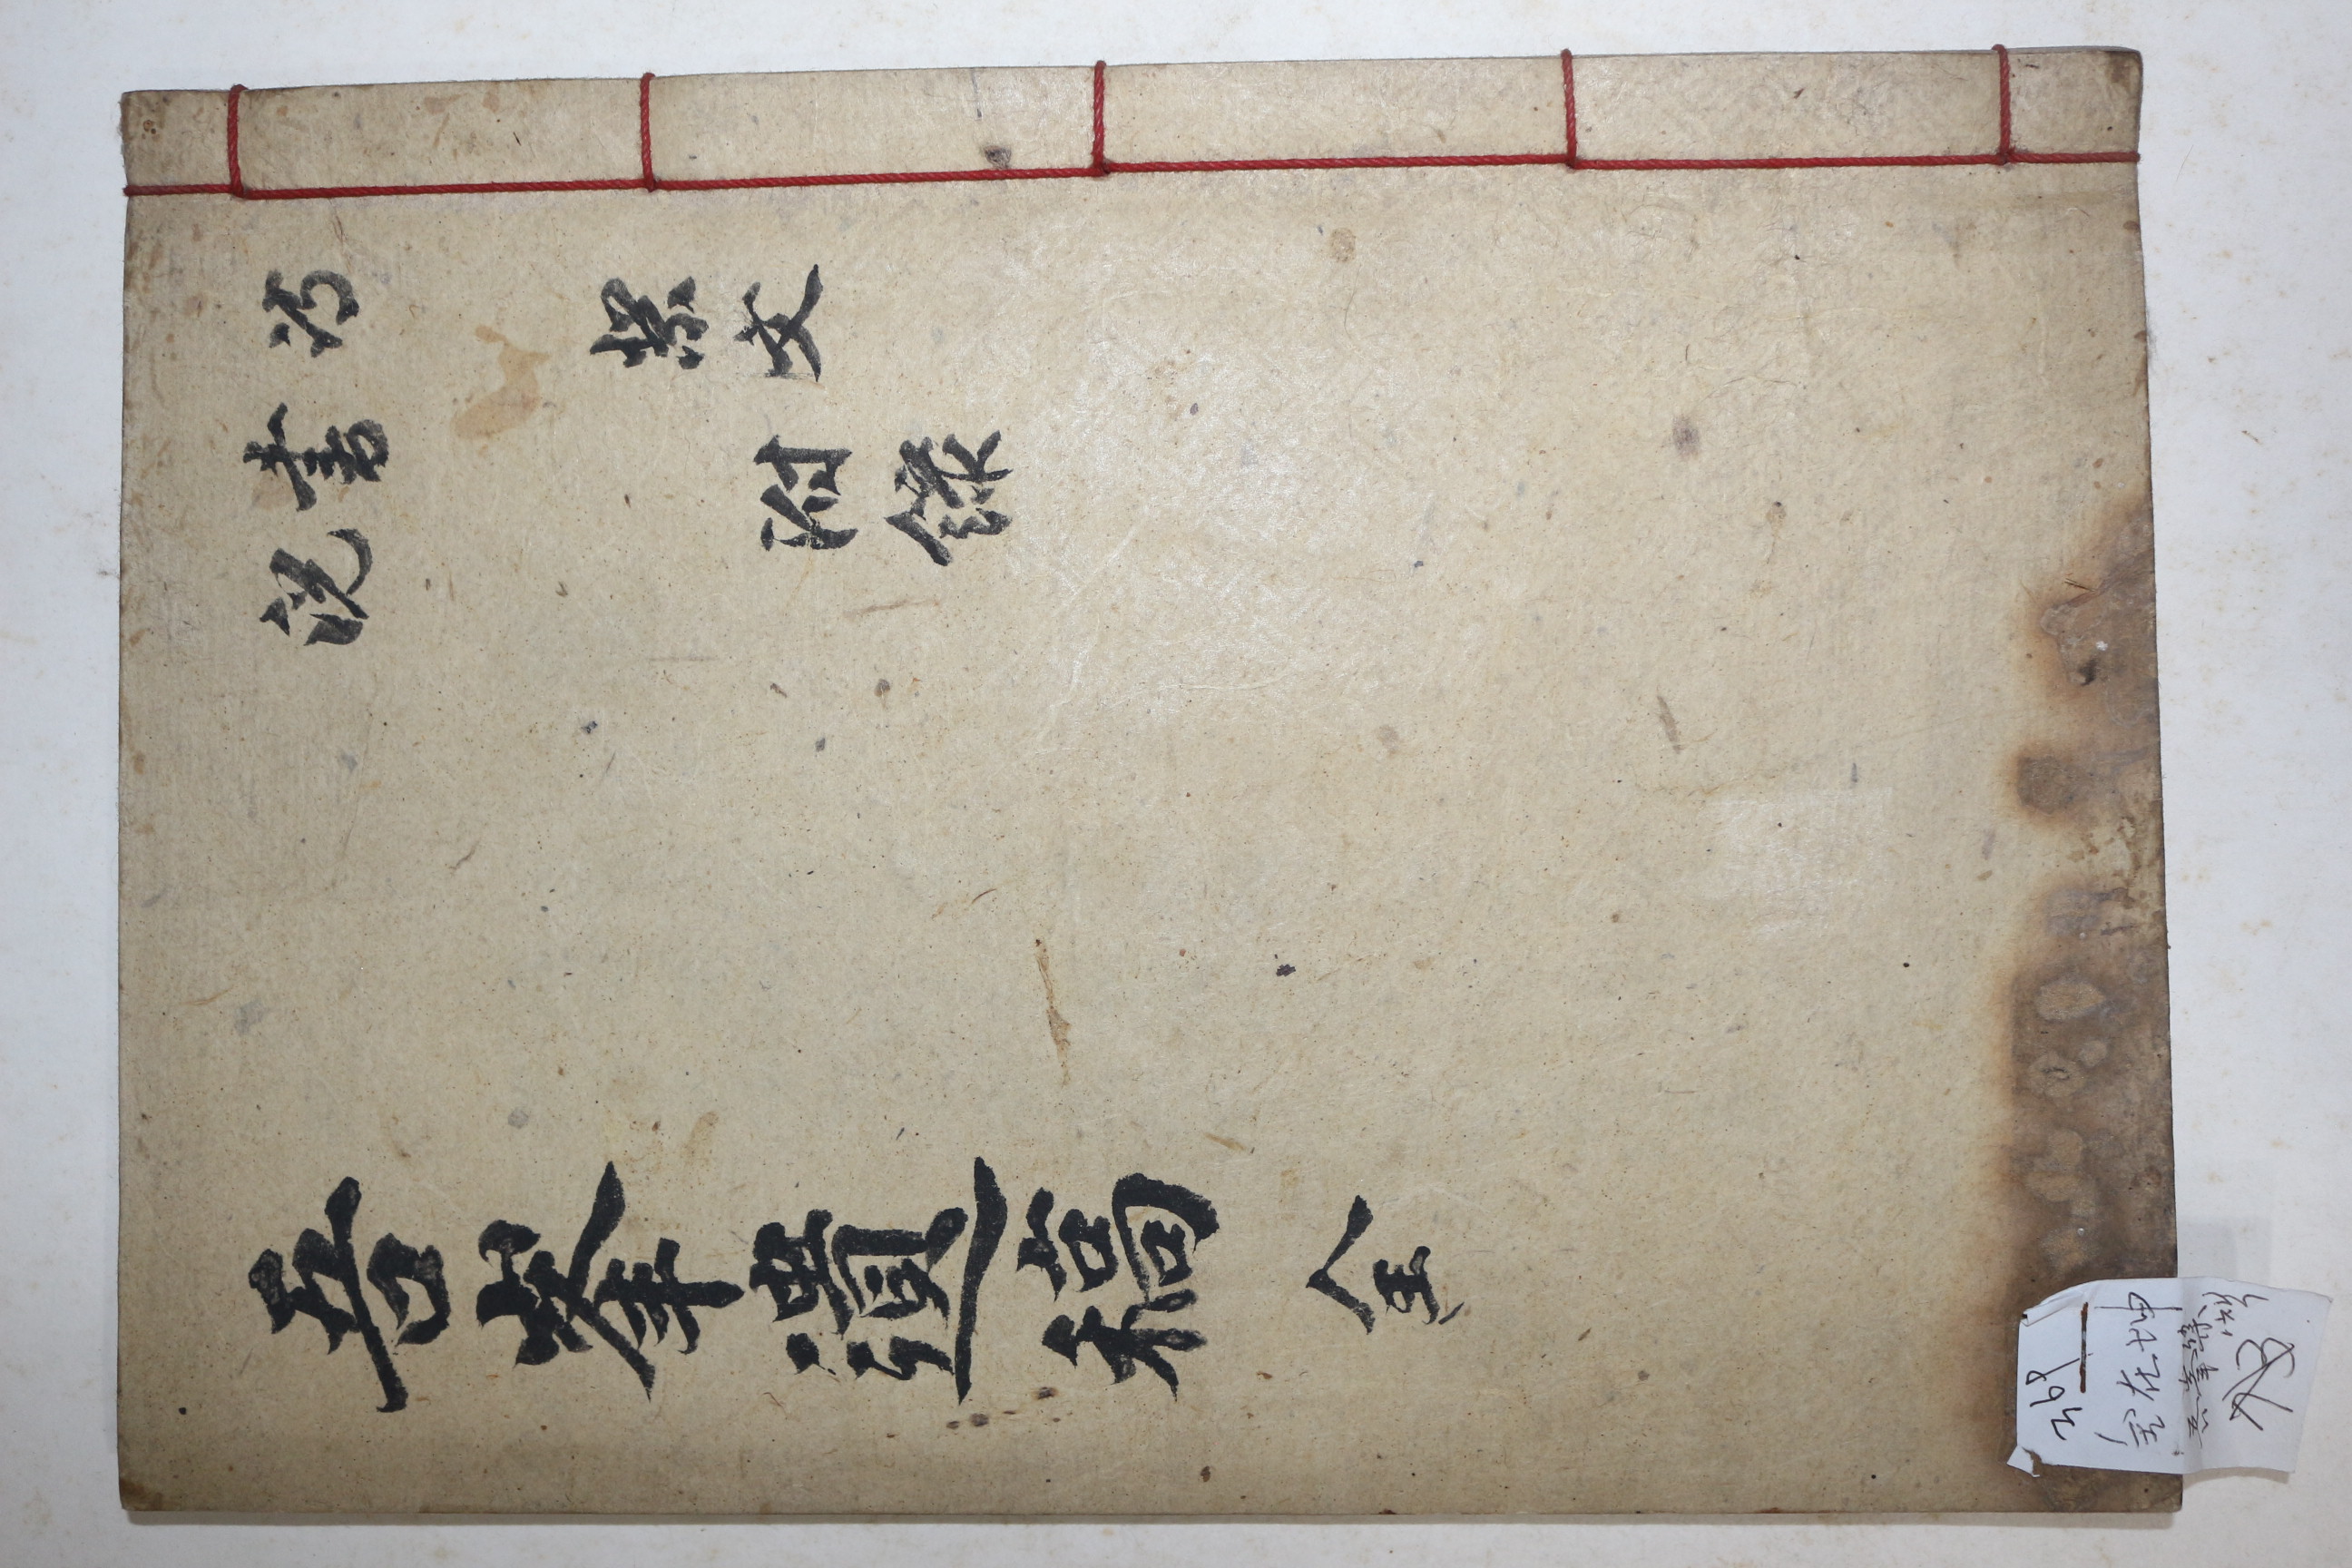 詩 祭文
書
說 附錄
吾峯遺稿 全
369
金在坤
吾峯集
1책